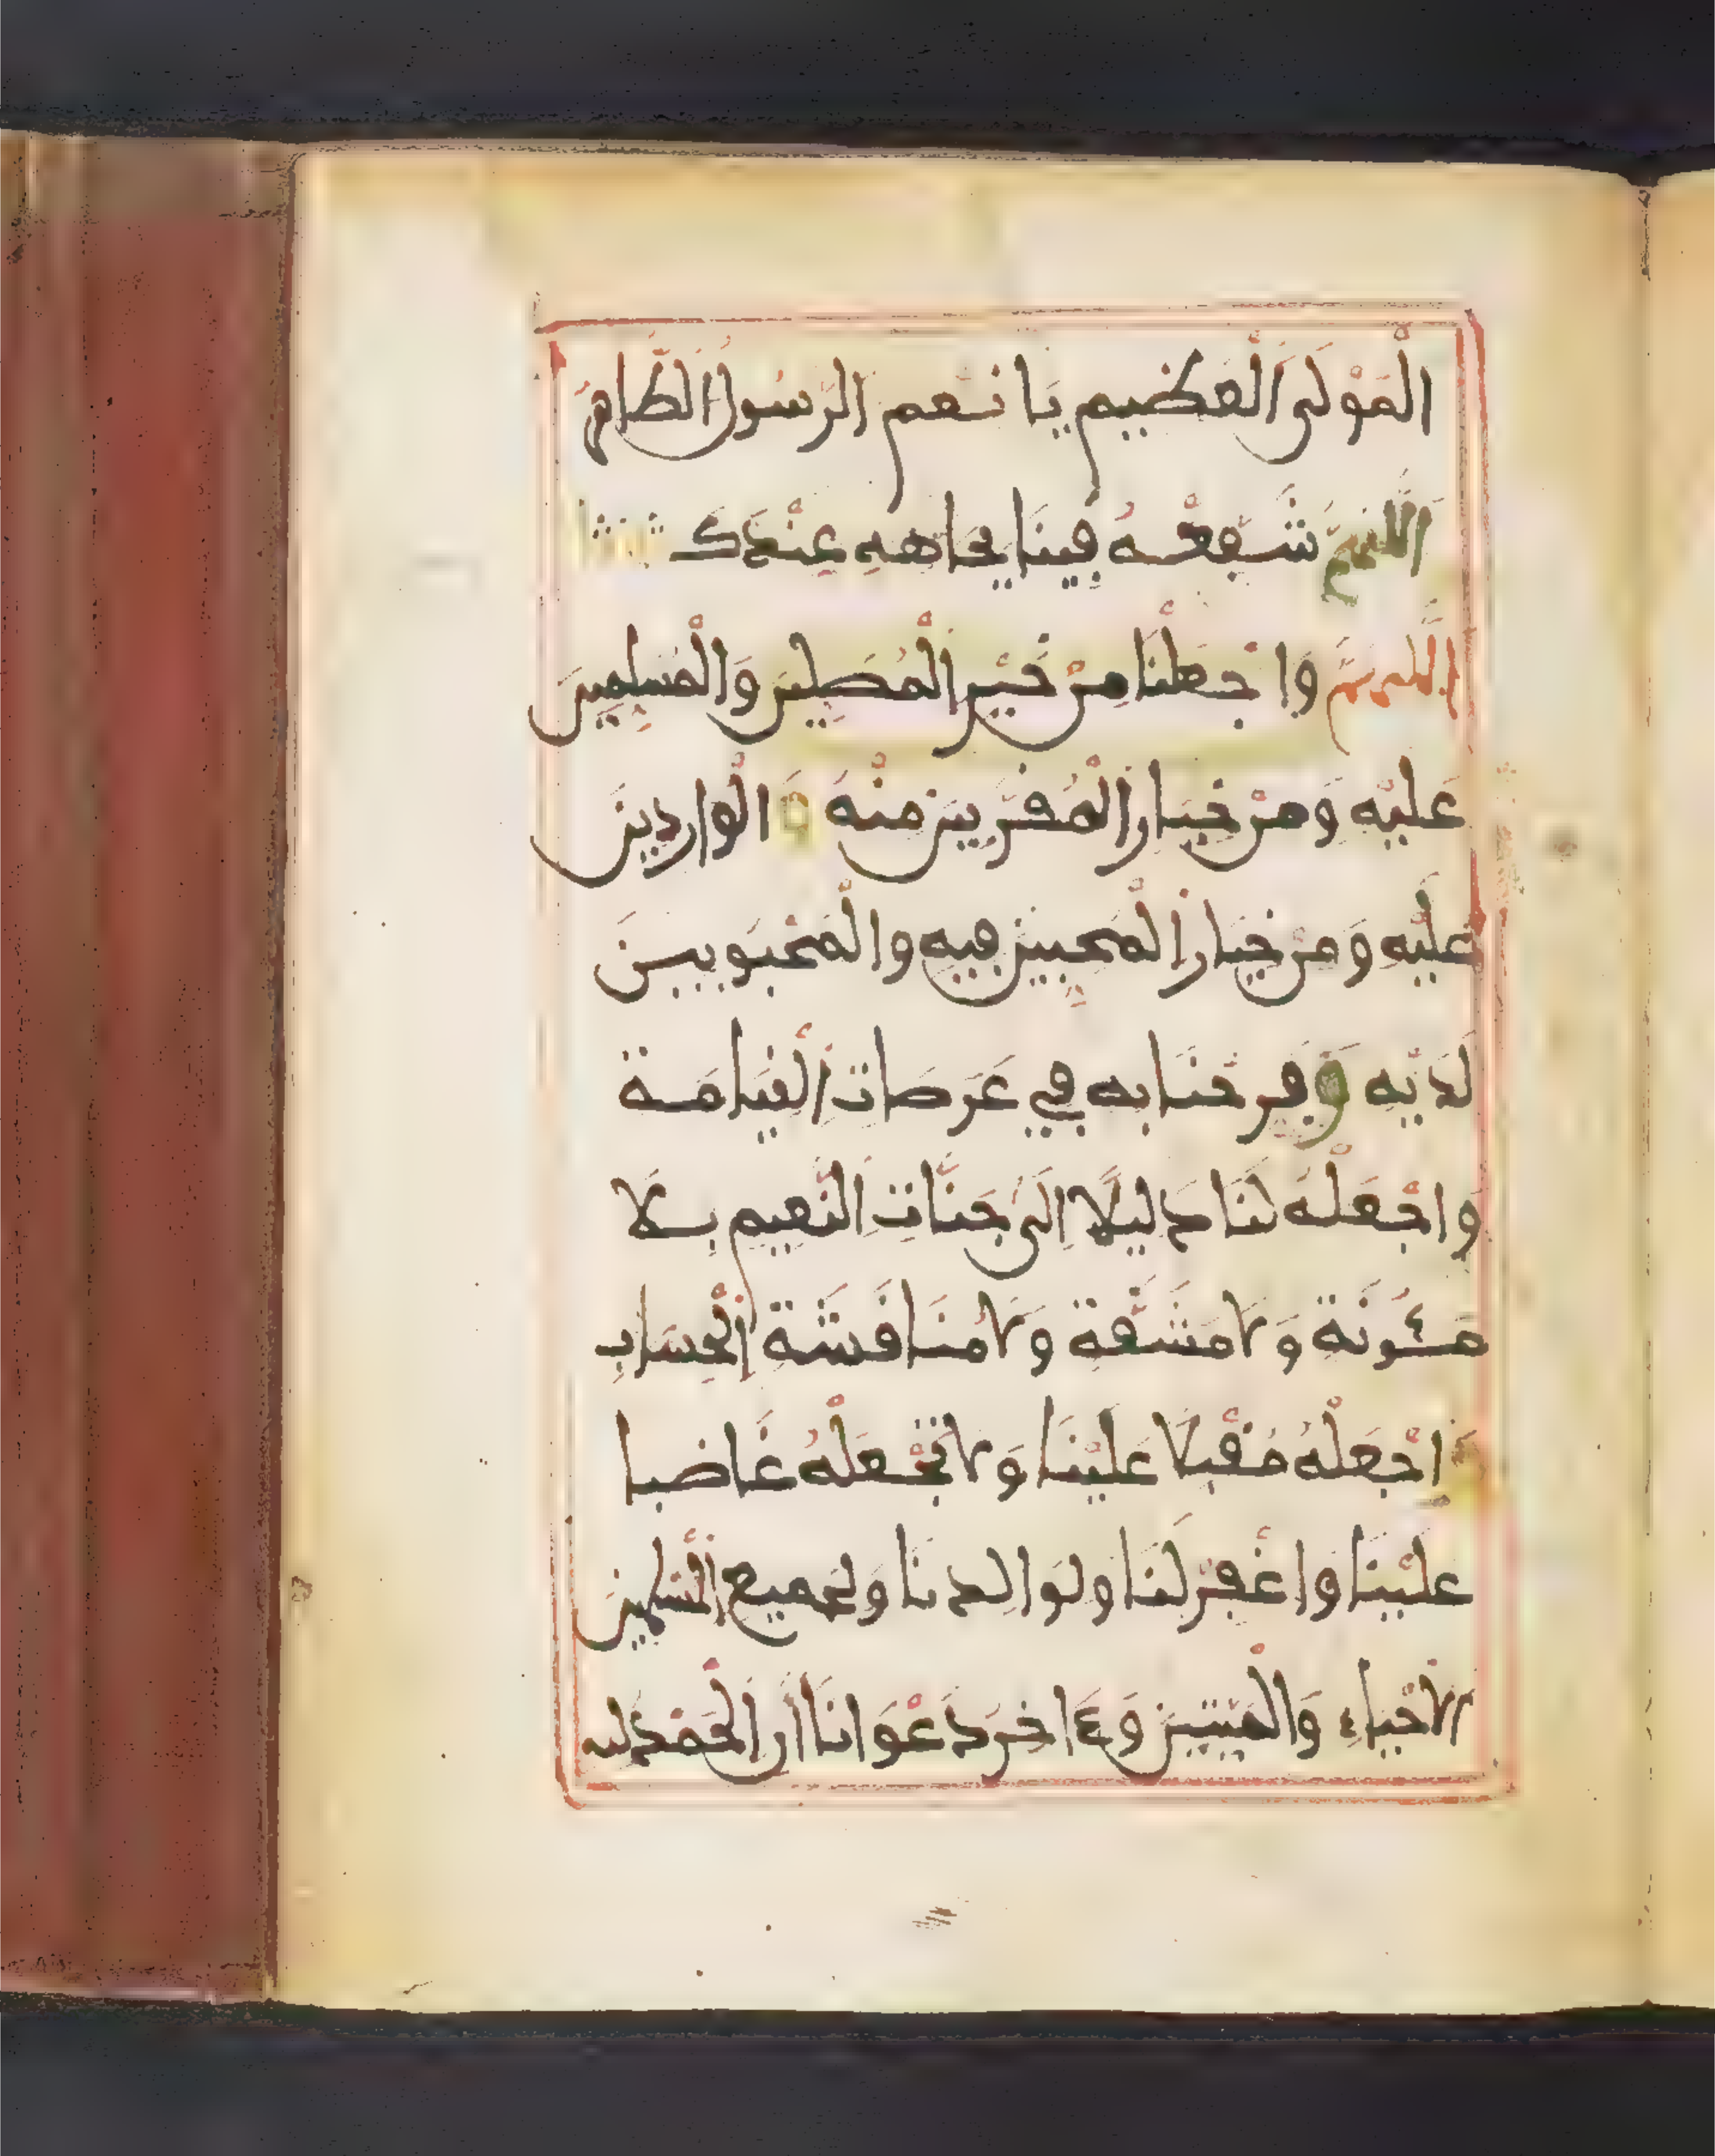 الْمَوْلَى الْعَظِيمِ يَا نِعْمَ الرَّسُولُ الطَّاهِرُ
اللَّهُمَّ شَفِّعْهُ فِينَا بِجَاهِهِ عِنْدَكَ
اللَّهُمَّ وَاجْعَلْنَا مِنْ خَيْرِ الْمُصَلِّينَ وَالْمُسَلِّمِينَ
عَلَيْهِ وَمِنْ خِيَارِ الْمُقَرَّبِينَ مِنْهُ وَالْوَارِدِينَ
عَلَيْهِ وَمِنْ خِيَارِ الْمُحِبِّينَ فِيهِ وَالْمَحْبُوبِينَ
لَدَيْهِ وَفَرِّحْنَا بِهِ فِي عَرَصَاتِ الْقِيَامَةِ
وَاجْعَلْهُ لَنَا دَلِيلًا اِلَى جَنَّاتِ النَّعِيمِ بِلَا
مَئُونَةٍ وَلَا مَشَقَّةٍ وَلَا مُنَاقَشَةِ الْحِسَابِ
وَاجْعَلْهُ مُقْبِلًا عَلَيْنَا وَلَا تَجْعَلْهُ غَاضِبا
عَلَيْنَا وَاغْفِرْ لَنَا وَلِوَالِدِنَا وَلِجَمِيعِ الْمُسْلِمِينَ
الْاَحْيَاءِ وَالْمَيِّتِينَ وَءَاخِرُ دَعْوَانَا أَنِ الْحَمْدُ لِلَّهِ